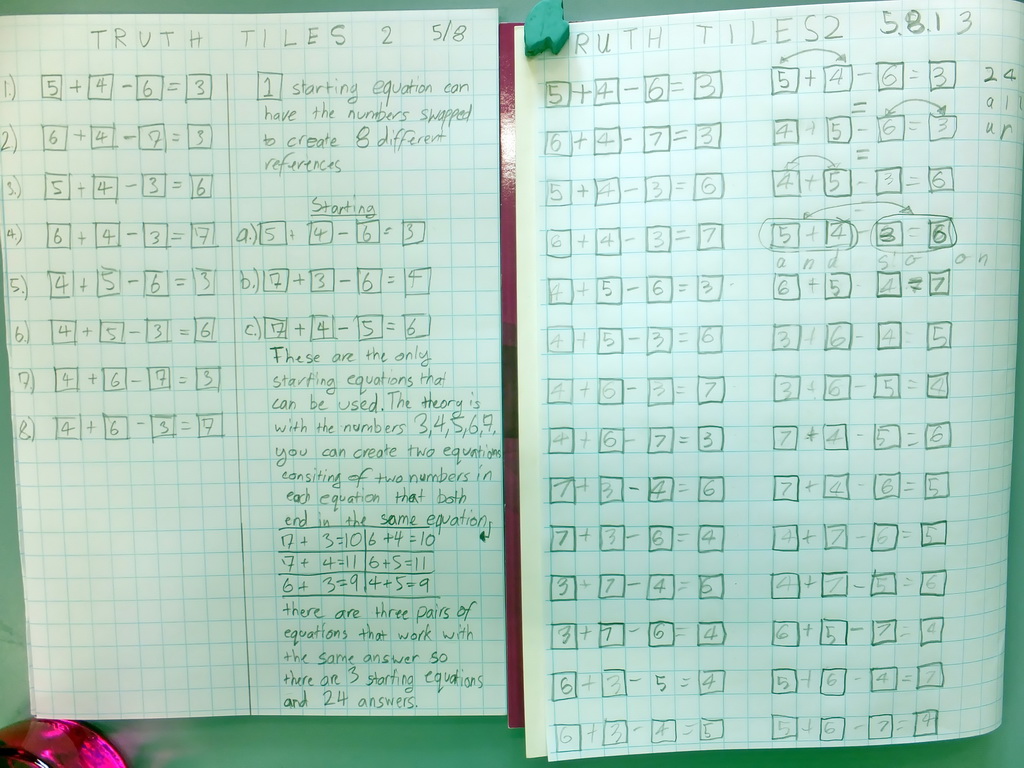 TRUTH TILES 2 5/8
1.) 5 + 4 - 6 = 3
2.) 6 + 4 - 7 = 3
3.) 5 + 4 - 3 = 6
4.) 6 + 4 - 3 = 7
5.) 4 + 5 - 6 = 3
6.) 4 + 5 - 3 = 6
7.) 4 + 6 - 7 = 3
8.) 4 + 6 - 3 = 7
1 starting equation can
have the numbers swapped
to create 8 different
references
Starting
a.) 5 + 4 - 6 = 3
b.) 7 + 3 - 6 = 4
c.) 7 + 4 - 5 = 6
These are the only
starting equations that
can be used. The theory is
with the numbers 3,4,5,6,7,
you can create two equations
consiting of two numbers in
each equation that both
end in the same equation,
7 + 3 = 10 | 6 + 4 = 10
7 + 4 = 11 | 6 + 5 = 11
6 + 3 = 9 | 4 + 5 = 9
there are three pairs of
equations that work with
the same answer so
there are 3 starting equations
and 24 answers.
RUTH TILES 2 5.8.13
5 + 4 - 6 = 3
6 + 4 - 7 = 3
5 + 4 - 3 = 6
6 + 4 - 3 = 7
4 + 5 - 6 = 3
4 + 5 - 3 = 6
4 + 6 - 3 = 7
4 + 6 - 7 = 3
7 + 3 - 4 = 6
7 + 3 - 6 = 4
3 + 7 - 4 = 6
3 + 7 - 6 = 4
6 + 3 - 5 = 4
6 + 3 - 4 = 5
5 + 4 - 6 = 3
=
4 + 5 - 6 = 3
=
4 + 5 - 3 = 6
5 + 4 - 3 = 6
and so on
6 + 5 - 4 = 7
3 + 6 - 4 = 5
3 + 6 - 5 = 4
7 + 4 - 5 = 6
7 + 4 - 6 = 5
4 + 7 - 6 = 5
4 + 7 - 5 = 6
6 + 5 - 7 = 4
5 + 6 - 4 = 7
5 + 6 - 7 = 4
24
all
ur